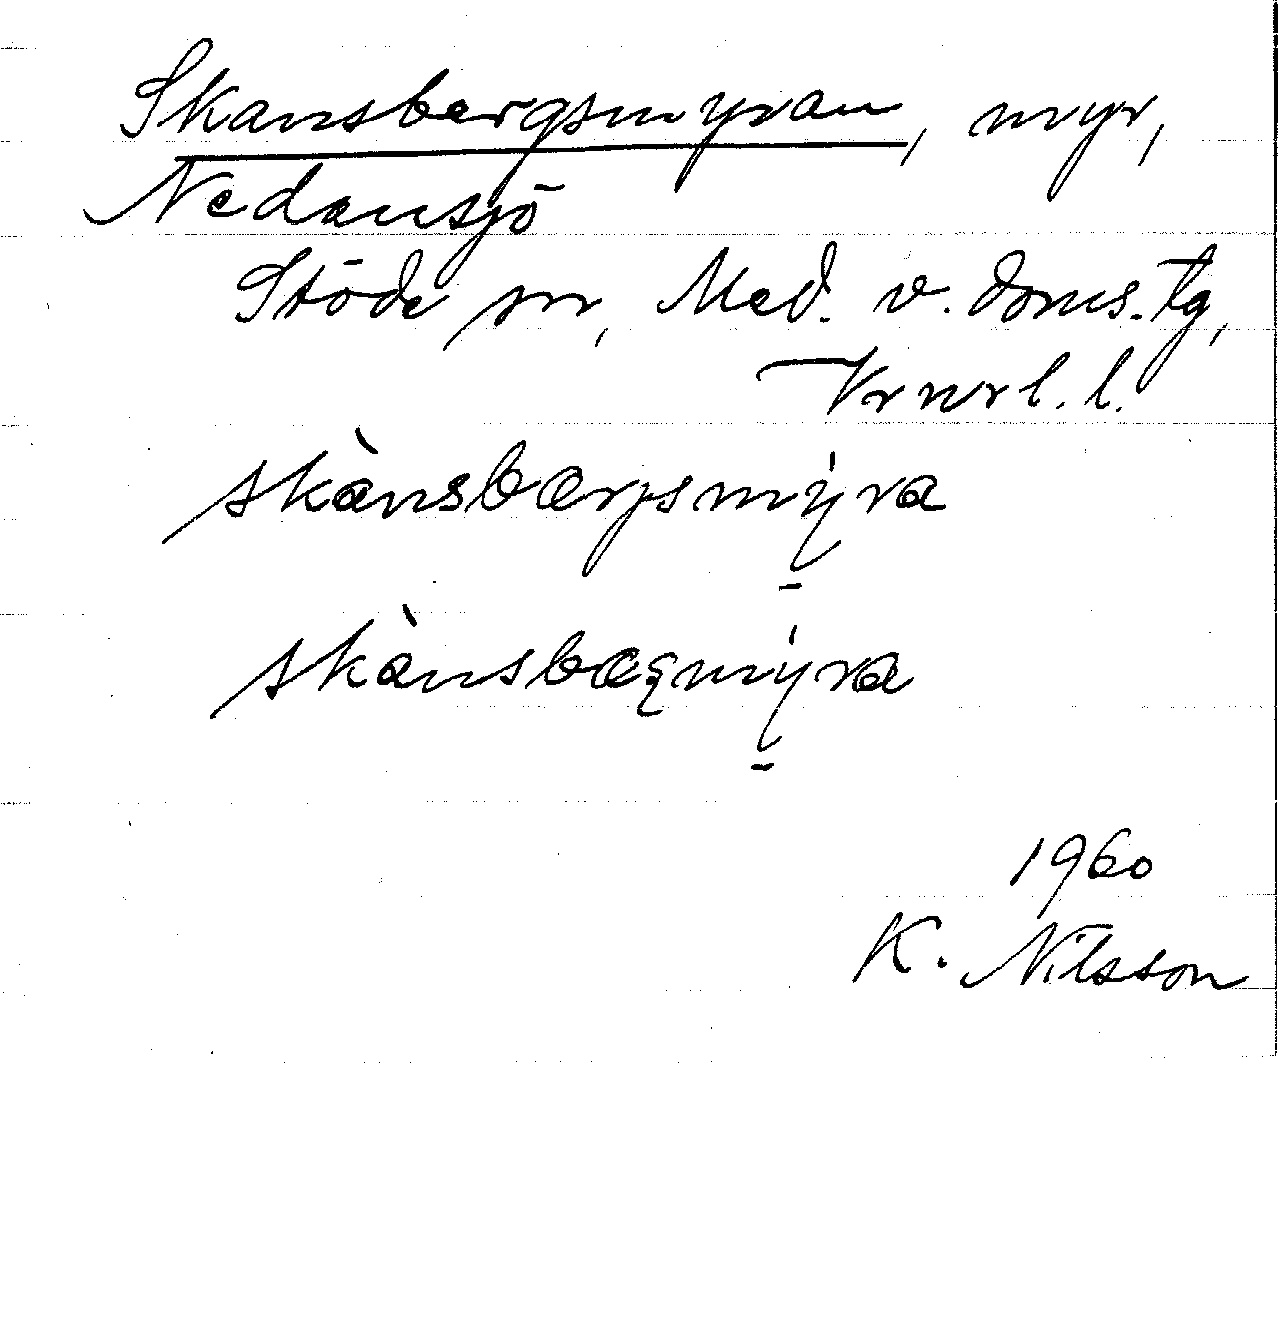 Skansbergsmyran, myr,
Nedansjö
Stöde sn, Med. v. doms. tg,
Vrnrl. l.
skànsbærjsmy̱̍ra
skànsbæʂmy̱̍ra
1960
K. Nilsson